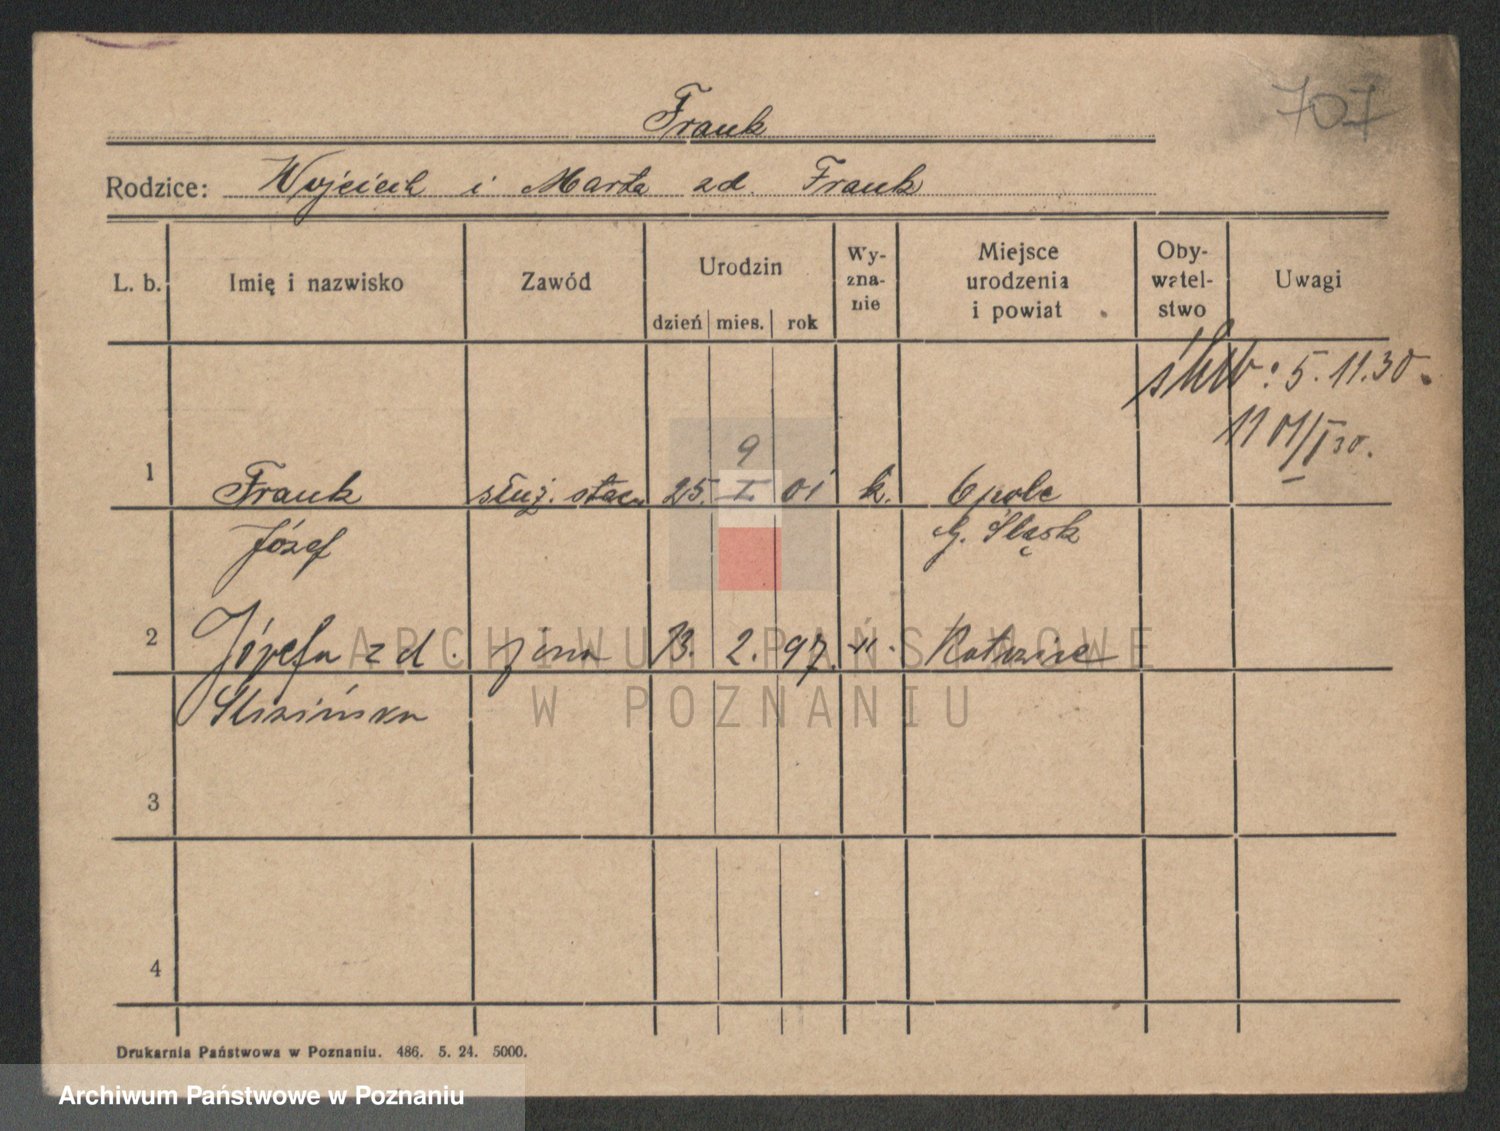 707
Frank
Rodzice: Wojciech i Marta zd. Frank
L. b. Imię i nazwisko Zawód Urodzin dzień mies. rok Wy-zna-nie Miejsce urodzenia i powiat Oby-watel-stwo Uwagi
ślub: 5.11.30.
9
1 Frank służ. stac. 25. I 01 k. Opole
Józef G. Śląsk
2 Józefa zd. żona 13. 2. 97. -"-
ARCHIWUM PAŃSTWOWE
W POZNANIU
3
4
Drukarnia Państwowa w Poznaniu. 486. 5. 24. 5000.
Archiwum Państwowe w Poznaniu